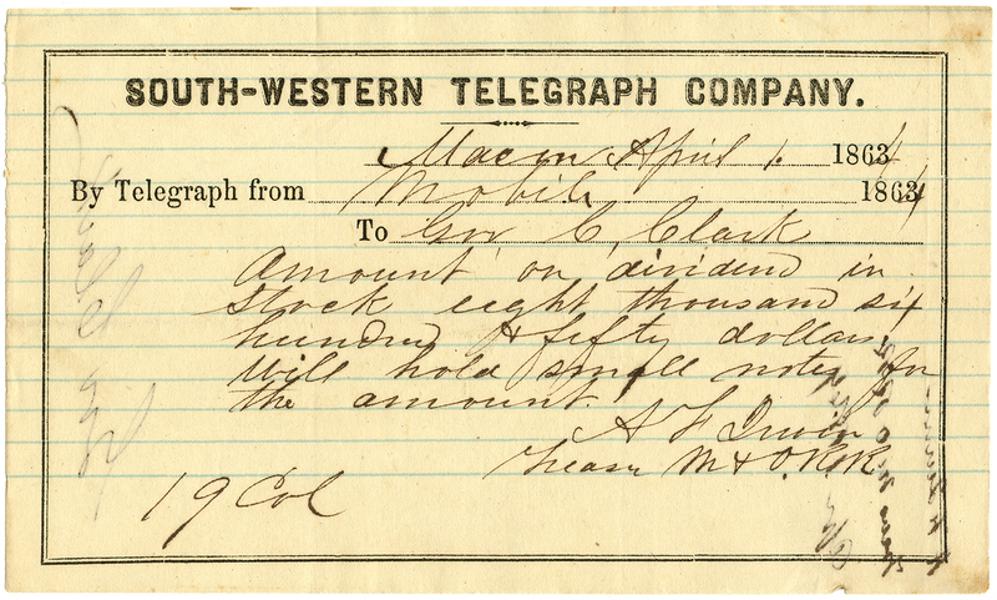 SOUTH-WESTERN TELEGRAPH COMPANY.
Macon April 1. 1864
By Telegraph from Mobile 1864
To Gov C, Clark
Amount on dividend in
stock eight thousand six
hundred & fifty dollars
Will hold small notes for
the amount.
A F Irwin
Treasr M & O. R R
19 Col